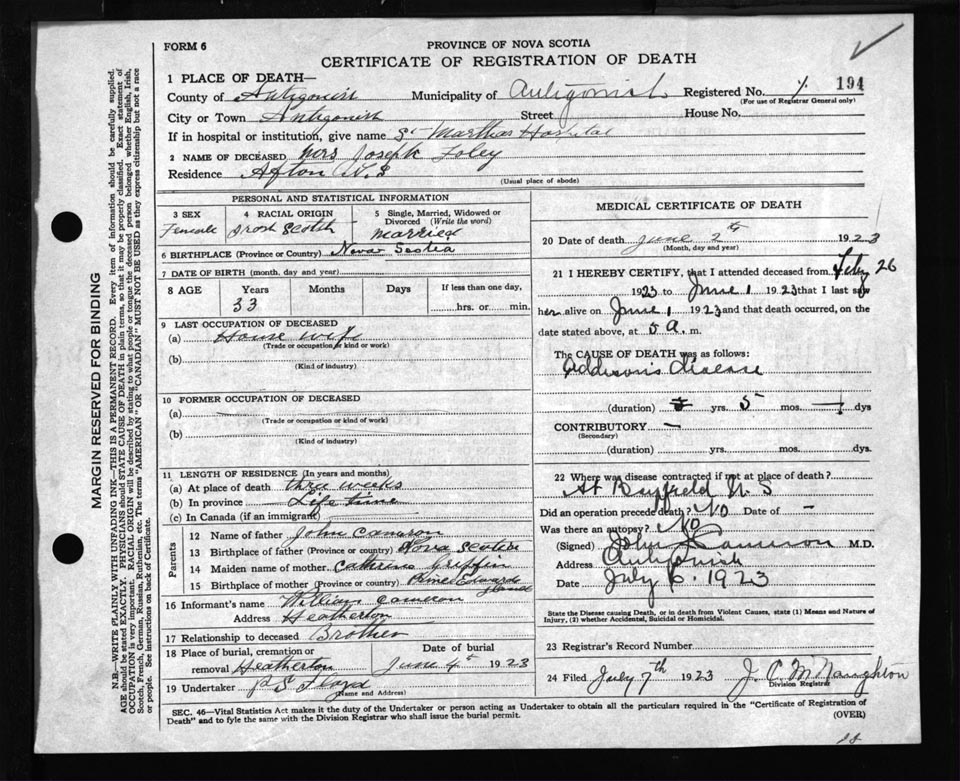 FORM 6
PROVINCE OF NOVA SCOTIA
CERTIFICATE OF REGISTRATION OF DEATH
194
1 PLACE OF DEATH—
County of Antigonish Municipality of Antigonish Registered No.
(For use of Registrar General only)
City or Town Antigonish Street House No.
If in hospital or institution, give name St Marthas Hospital
2 NAME OF DECEASED Mrs Joseph Foley
Residence Afton N.S
(Usual place of abode)
PERSONAL AND STATISTICAL INFORMATION
3 SEX
Female
4 RACIAL ORIGIN
Irish Scotch
5 Single, Married, Widowed or Divorced (Write the word)
Married
6 BIRTHPLACE (Province or Country) Nova Scotia
7 DATE OF BIRTH (month, day and year)
8 AGE Years Months Days If less than one day,
33 hrs. or min.
9 LAST OCCUPATION OF DECEASED
(a) House wife
(Trade or occupation or kind or work)
(b)
(Kind of industry)
10 FORMER OCCUPATION OF DECEASED
(a)
(Trade or occupation or kind of work)
(b)
(Kind of industry)
11 LENGTH OF RESIDENCE (In years and months)
(a) At place of death three weeks
(b) In province Life time
(c) In Canada (if an immigrant)
Parents
12 Name of father John Cameron
13 Birthplace of father (Province or country) Nova Scotia
14 Maiden name of mother Catherine Griffin
15 Birthplace of mother (Province or country) Prince Edward Island
16 Informant's name William Cameron
Address Heatherton
17 Relationship to deceased Brother
18 Place of burial, cremation or removal Heatherton
Date of burial
June 4th 1923
19 Undertaker P S Floyd
(Name and Address)
MEDICAL CERTIFICATE OF DEATH
20 Date of death June 2th 1923
(Month, day and year)
21 I HEREBY CERTIFY, that I attended deceased from Feby 26
1923 to June 1 1923 that I last saw
her alive on June 1 1923 and that death occurred, on the
date stated above, at 5 a. m.
The CAUSE OF DEATH was as follows:
Addison's disease
(duration) yrs. 5 mos. dys
CONTRIBUTORY —
(Secondary)
(duration) yrs. mos. dys.
22 Where was disease contracted if not at place of death?
At Bayfield N.S
Did an operation precede death? No Date of —
Was there an autopsy? No
(Signed) John Cameron M.D.
Address Antigonish
Date July 6. 1923
State the Disease causing Death, or in death from Violent Causes, state (1) Means and Nature of
Injury, (2) whether Accidental, Suicidal or Homicidal.
23 Registrar's Record Number
24 Filed July 7th 1923 J. C McNaughton
Division Registrar
SEC. 46—Vital Statistics Act makes it the duty of the Undertaker or person acting as Undertaker to obtain all the particulars required in the "Certificate of Registration of
Death" and to fyle the same with the Division Registrar who shall issue the burial permit.
(OVER)
MARGIN RESERVED FOR BINDING
N.B.—WRITE PLAINLY WITH UNFADING INK—THIS IS A PERMANENT RECORD. Every item of information should be carefully supplied.
AGE should be stated EXACTLY. PHYSICIANS should STATE CAUSE OF DEATH in plain terms, so that it may be properly classified. Exact statement of
OCCUPATION is very important. RACIAL ORIGIN will be described by stating to what people or tongue the deceased person belonged whether English, Irish,
Scotch, French, German, Russian, Ruthenian, etc. The terms "AMERICAN" OR "CANADIAN" MUST NOT BE USED as they express citizenship but not a race
or people. See instructions on back of Certificate.